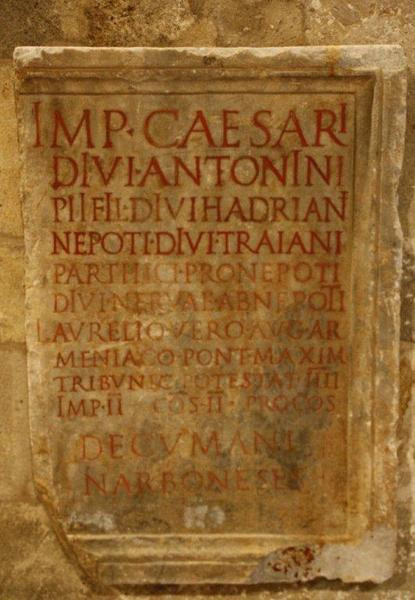 IMP·CAESARI
DIVI·ANTONINI
PII FIL·DIVI HADRIANI
NEPOTI·DIVI·TRAIANI
PARTHICI·PRONEPOTI
DIVI NERVAE ABNEPOTI
L AVRELIO VERO AVG AR
MENIACO PONT MAXIM
TRIBVNIC POTESTAT IIII
IMP·II COS·II· PROCOS
DECVMANI
NARBONESES